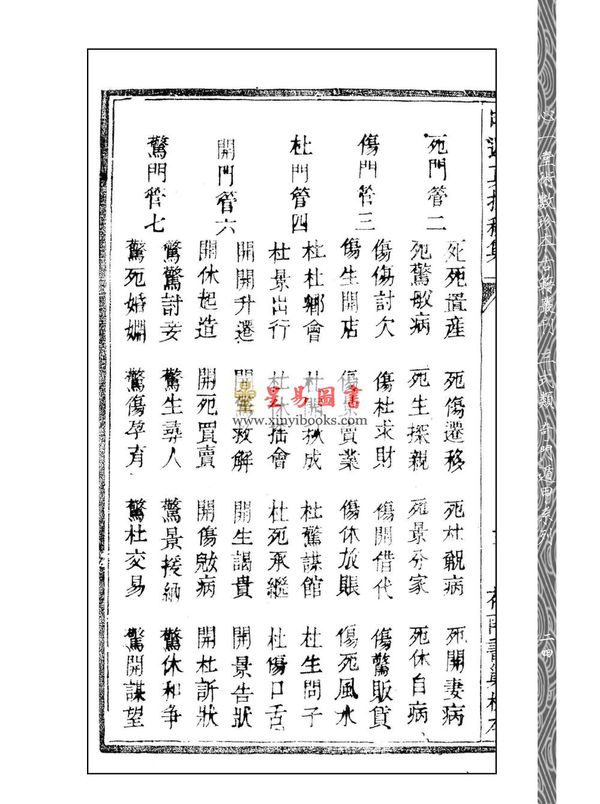 死門管二
死死置產 死傷遷移 死杜覲病 死開妻病
死驚敝病 死生探親 死景分家 死休自病
傷門管三
傷傷討欠 傷杜求財 傷開借代 傷驚販貨
傷生開店 傷景賣業 傷休放賬 傷死風水
杜門管四
杜杜鄉會 杜開秋成 杜驚謀館 杜生問子
杜景出行 杜休 會 杜死承繼 杜傷口舌
開門管六
開開升遷 開驚救解 開生謁貴 開景告狀
開休起造 開死買賣 開傷 病 開杜訴狀
驚門管七
驚驚討妾 驚生尋人 驚景接納 驚休和爭
驚死婚姻 驚傷孕育 驚杜交易 驚開謀望
星易圖書
www.xinyibooks.com
二四